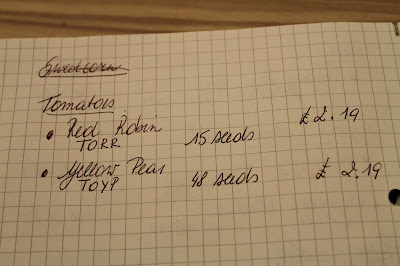 Sweetcorn
Tomatoes
• Red Robin 15 seeds £2.19
TORR
• Yellow Pear 48 seeds £ 2.19
TOYP